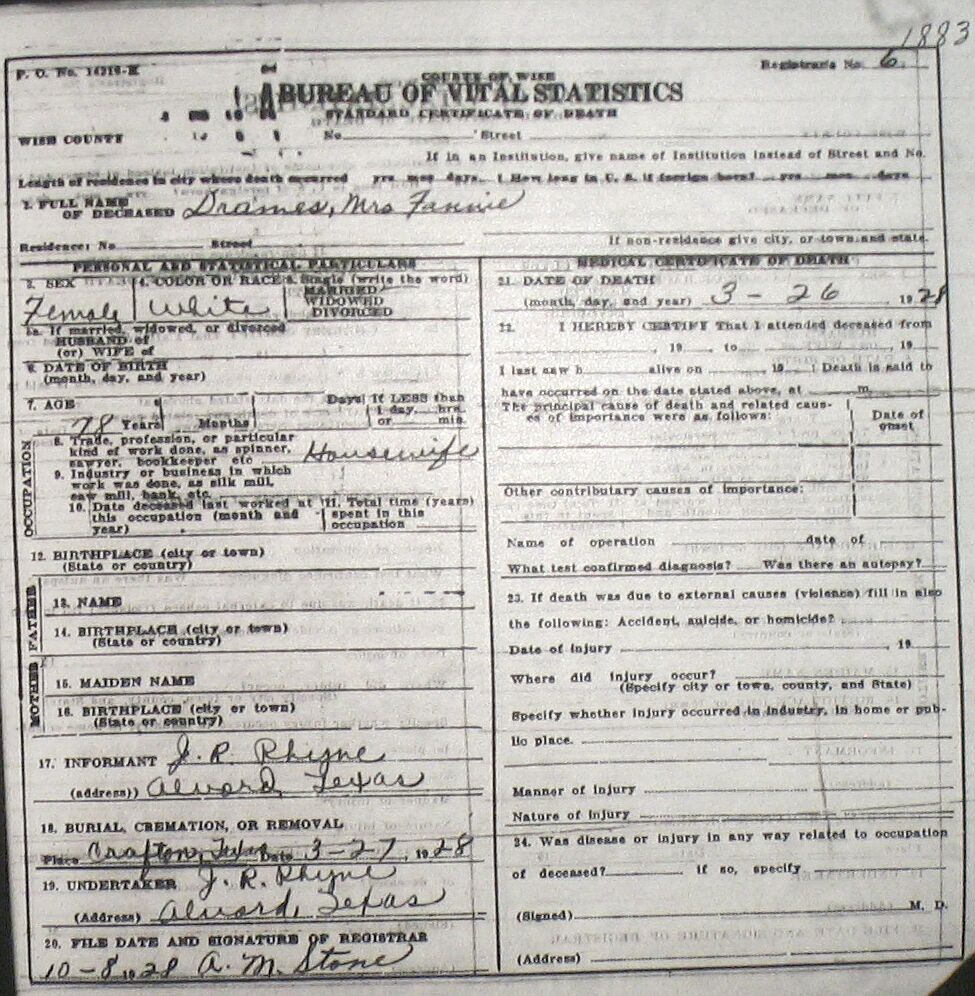 1883
F. O. No. 14216-H
COUNTY OF WISE
Registrar's No. 6
BUREAU OF VITAL STATISTICS
STANDARD CERTIFICATE OF DEATH
WISE COUNTY No. Street
If in an Institution, give name of Institution instead of Street and No.
Length of residence in city where death occurred yrs mos days. How long in U. S. if foreign born? yrs mos days
2. FULL NAME
OF DECEASED Drames, Mrs Fannie
Residence: No Street
If non-residence give city, or town and state.
PERSONAL AND STATISTICAL PARTICULARS
3. SEX 4. COLOR OR RACE 5. Single (write the word)
MARRIED
WIDOWED
DIVORCED
Female White
5a. If married, widowed, or divorced
HUSBAND of
(or) WIFE of
6. DATE OF BIRTH
(month, day, and year)
7. AGE Days If LESS than
1 day, hrs.
78 Years Months or min.
OCCUPATION
8. Trade, profession, or particular
kind of work done, as spinner,
sawyer, bookkeeper etc Housewife
9. Industry or business in which
work was done, as silk mill,
saw mill, bank, etc.
10. Date deceased last worked at
this occupation (month and
year)
11. Total time (years)
spent in this
occupation
12. BIRTHPLACE (city or town)
(State or country)
FATHER
13. NAME
14. BIRTHPLACE (city or town)
(State or country)
MOTHER
15. MAIDEN NAME
16. BIRTHPLACE (city or town)
(State or country)
17. INFORMANT J. R. Rhyne
(address)) Alvord, Texas
18. BURIAL, CREMATION, OR REMOVAL
Place Crafton, Texas Date 3-27, 1928
19. UNDERTAKER J. R. Rhyne
(Address) Alvord, Texas
20. FILE DATE AND SIGNATURE OF REGISTRAR
10-8 1928 A. M. Stone
MEDICAL CERTIFICATE OF DEATH
21. DATE OF DEATH
(month, day, and year) 3-26, 1928
22. I HEREBY CERTIFY That I attended deceased from
, 19 to , 19
I last saw h alive on , 19 Death is said to
have occurred on the date stated above, at m.
The principal cause of death and related caus-
es of importance were as follows:
Date of
onset
Other contributary causes of importance:
Name of operation date of
What test confirmed diagnosis? Was there an autopsy?
23. If death was due to external causes (violence) fill in also
the following: Accident, suicide, or homicide?
Date of injury , 19
Where did injury occur?
(Specify city or town, county, and State)
Specify whether injury occurred in industry, in home or pub-
lic place.
Manner of injury
Nature of injury
24. Was disease or injury in any way related to occupation
of deceased? if so, specify
(Signed) M. D.
(Address)